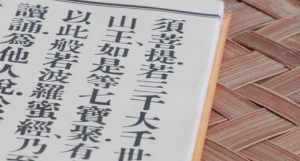 須菩提若三千大千世
山王如是等七寶聚有
以此般若波羅蜜經乃
讀誦為他人說